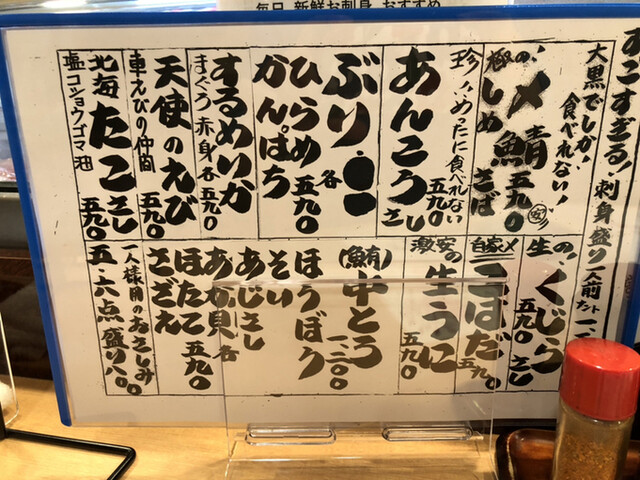 毎日 新鮮お刺身 おすすめ
すごすぎる!刺身盛り一人前
大黒でしか!食べれない!
極の!〆鯖
しめさば 五九〇
珍!めったに食べれない
あんこうさし 五九〇
ぶり・
ひらめ 各五九〇
かんぱち
するめいか
まぐろ赤身 各五九〇
天使のえび
車えびの仲間 五九〇
北海たこさし
塩コショウゴマ油 五九〇
生の!くじら
五九〇 さし
自家〆
こはだ 五九〇
激安の生うに
五九〇
(鮪)中とろ
一、二〇〇
ほうぼう
そい
あじさし
あか貝 各
ほたて 五九〇
さざえ
一人様用のおさしみ
五・六点盛り八〇〇